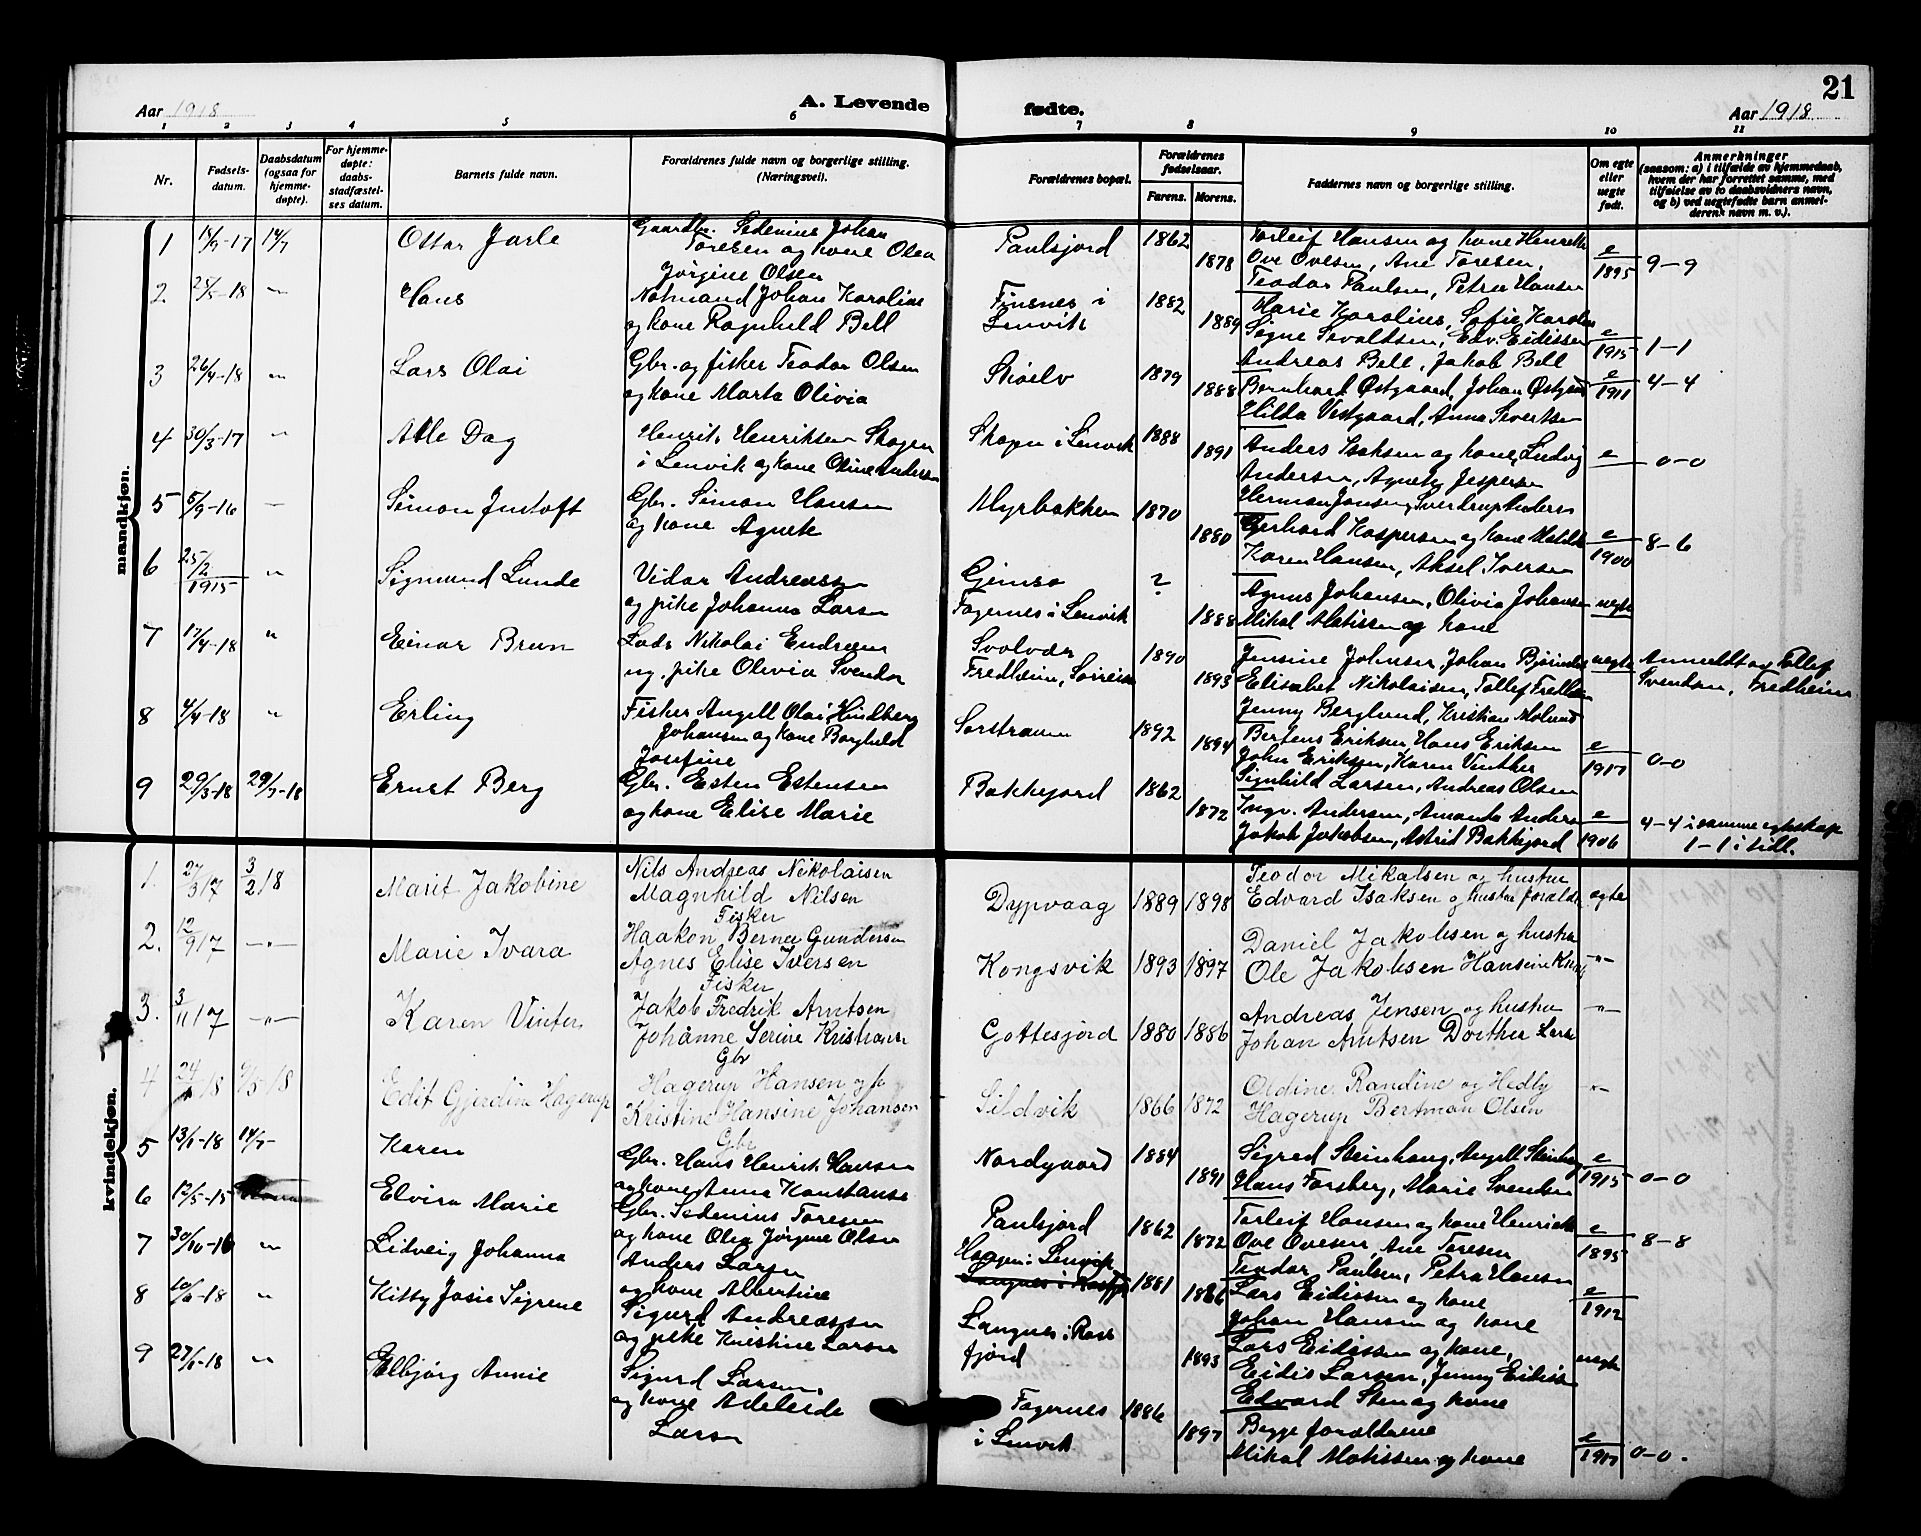 21
Aar 1918
A. Levende
fødte.
Aar 1918
1 2 3 4 5 6 7 8 9 10 11
Nr.
Fødsels-
datum.
Daabsdatum
(ogsaa for
hjemme-
døpte).
For hjemme-
døpte:
daabs-
stadfæstel-
ses datum.
Barnets fulde navn.
Forældrenes fulde navn og borgerlige stilling.
(Næringsvei).
Forældrenes bopæl.
Forældrenes
fødselsaar.
Farens. Morens.
Faddernes navn og borgerlige stilling.
Om egte
eller
uegte
født.
Anmerkninger
(saasom: a) i tilfælde av hjemmedaab,
hvem der har forrettet samme, med
tilføielse av to daabsvidners navn,
og b) ved uegtefødte barn anmel-
derens navn m. v.).
mandkjøn.
1 14/7 Ottar Jarle
Gaardbr. Sedenius Johan
Toresen og kone Olea
Jørgine Olsen
Paulsjord 1862 1878
Torleif Hansen og kone Henrikke
Ove Ovesen, Ane Toresen,
Teodor Paulsen, Petra Hansen
e 1895 9-9
2. 25/5-18 " Hans
Notmand Johan Karolius
og kone Ragnhild Bell
Finsnes i
Lenvik
1882 1889
Marie Karolius, Sofie Karolius
Signe Sivaldsen, Edv. Eidissen
Andreas Bell, Jakob Bell
e 1915 1-1
3 26/4-18 " Lars Olai
Gbr. og fisker Teodor Olsen
og kone Marta Olivia
Skøelv 1879 1888
Bernhard Østgaard, Johan Østgaard
Hilda Vestgaard, Anna Sivertsen
e 1911 4-4
4 30/3-17 " Atle Dag
Henrik Henriksen Skogen
i Lenvik og kone Oline Andersen
Skogen i Lenvik 1888 1891
Anders Isaksen og kone, Ludvig
Andersen, Agnete Jespersen
Herman Jansen, Sverdrup Anders
e 0-0
5 5/9-16 - Simon Justoft
Gbr. Simon Hansen
og kone Agnete
Myrbakken 1870 1880
Gerhard Kaspersen og kone Matilde
Karen Hansen, Aksel Iversen
e 1900 8-6
6 25/2 1915 " Sigmund Lunde
Vidar Andreassen
og pike Johanna Larsen
Gimsø
Fagernes i Lenvik
? 1888
Agnes Johansen, Olivia Johansen
Mikal Matissen og kone
uegte
7 17/4-18 " Einar Brun
Lods Nikolai Endresen
ug. pike Olivia Svendsen
Svolvær
Fredheim, Sørreisa
1890 1893
Jensine Johnsen, Johan Bjørnder
Elisabet Nikolaisen, Tollef Frellsen
Jenny Berglund, Kristian Molund
uegte
Anmeldt av Tollef
Svendsen, Fredheim
8 4/4-18 " Erling
Fisker Angell Olai Hindberg
Johansen og kone Borghild
Josefine
Sørstraumen 1892 1894
Bertens Eriksen, Hans Eriksen
John Eriksen, Karen Vinther
Signhild Larsen, Andreas Olsen
e 1917 0-0
9 29/3-18 29/7-18 Ernst Berg
Gbr. Esten Estensen
og kone Elise Marie
Bakkejord 1862 1872
Ingv. Andersen, Amanda Andersen
Jakob Jakobsen, Astrid Bakkejord
e 1906
4-4 i samme egteskap
1-1 i tidl.
kvindekjøn.
1. 27/3 17 3/2 18 Marit Jakobine
Nils Andreas Nikolaisen
Magnhild Nilsen
Fisker
Dypvaag 1889 1898
Teodor Mikalsen og hustru
Edvard Isaksen og hustru foreldr.
egte
2. 12/9 17 -"- Marie Ivara
Haakon Berner Gundersen
Agnes Elise Iversen
Fisker
Kongsvik 1893 1897
Daniel Jakobsen og hustru
Ole Jakobsen Hansine Knud
-"-
3. 3/11 17 -"- Karen Vinter
Jakob Fredrik Arntsen
Johanne Serine Kristiansen
Gbr
Gottesjord 1880 1886
Andreas Jensen og hustru
Johan Arntsen Dorthea Larsen
-"-
4 18 Edit Gjerdine Hagerup
Hagerup Hansen og h
Kristine Hansine Johansen
Gbr
Sildvik 1866 1872
Oldine, Randine og Hedly
Hagerup Bertman Olsen
-"-
5 13/1-18 14/7- Karen
Gbr. Hans Henrik Hansen
og kone Anna Konstanse
Nordgaard 1884 1891
Sigrid Steinhaug, Angell Steinhaug
Hans Forsberg, Marie Svendsen
e 1915 0-0
6 12/5-15 Elvira Marie
Gbr. Sedenius Toresen
og kone Olea Jørgine Olsen
Paulsjord 1862 1872
Torleif Hansen og kone Henrikke
Ove Ovesen, Ane Toresen
Teodor Paulsen, Petra Hansen
e 1895 8-8
7 30/10-16 " Lidveig Johanna
Anders Larsen
og kone Albertine
Hagen i Lenvik
1881 1886
Lars Eidissen og kone
Johan Hansen og kone
e 1912
8 10/6-18 " Kitty Josie Sigrene
Sigurd Andreassen
og pike Kristine Larsen
Langnes i Ross
fjord
1893
Lars Eidissen og kone,
Eidis Larsen, Jenny Eidissen
Edvard Sten og kone
uegte
9 27/6-18 " Elbjørg Annie
Sigurd Larsen
og kone Adeleide
Larsen
Fagernes
i Lenvik
1886 1897
Begge forældrene
Mikal Matissen og kone
e 1917 0-0.